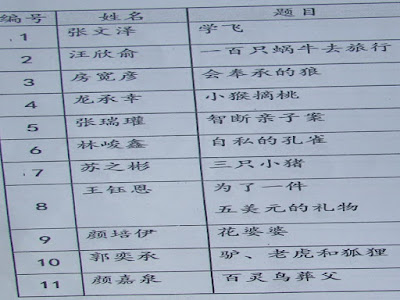 编号 姓名 题目
1 张文泽 学飞
2 汪欣俞 一百只蜗牛去旅行
3 房宽彦 会奉承的狼
4 龙承幸 小猴摘桃
5 张瑞瓘 智断亲子案
6 林峻鑫 自私的孔雀
7 苏之彬 三只小猪
8 王钰恩 为了一件
五美元的礼物
9 颜培伊 花婆婆
10 郭奕承 驴、老虎和狐狸
11 颜嘉泉 百灵鸟葬父